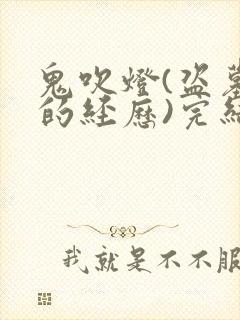 鬼吹燈(盗墓
的经歷)完結
我就是不不服